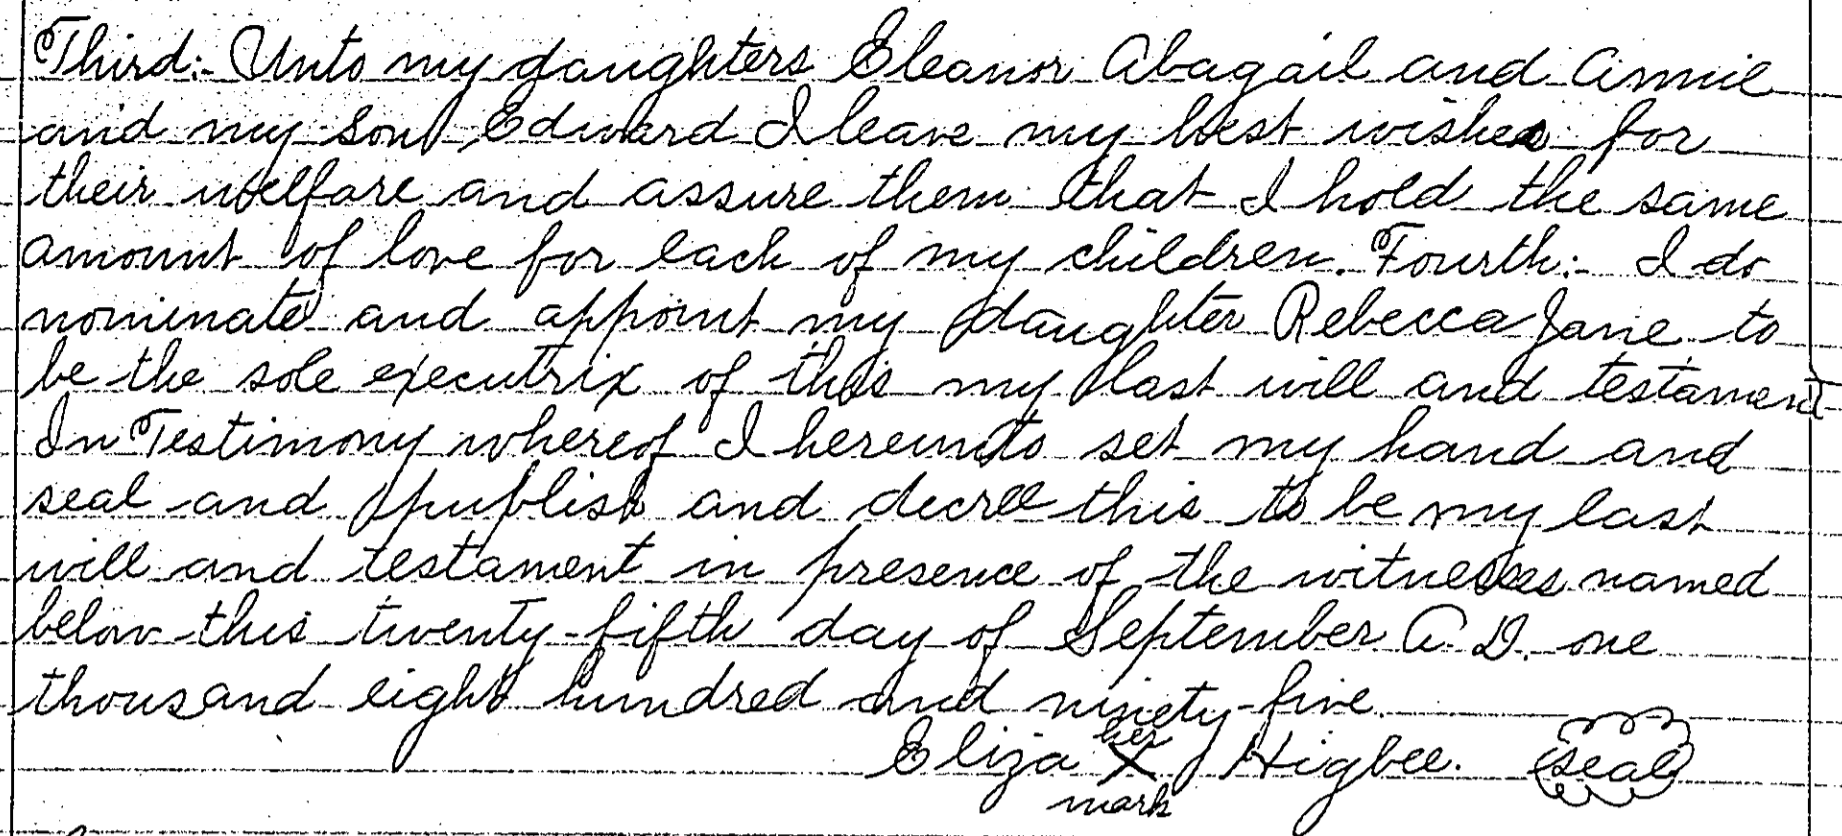 Third:- Unto my daughters Eleanor Abagail and Annie
and my son Edward I leave my best wishes for
their welfare and assure them that I hold the same
amount of love for each of my children. Fourth:- I do
nominate and appoint my daughter Rebecca Jane to
be the sole executrix of this my last will and testament
In Testimony whereof I hereunto set my hand and
seal and publish and decree this to be my last
will and testament in presence of the witnesses named
below this twenty-fifth day of September A.D. one
thousand eight hundred and ninety-five.
her
Eliza X Higbee. seal
mark